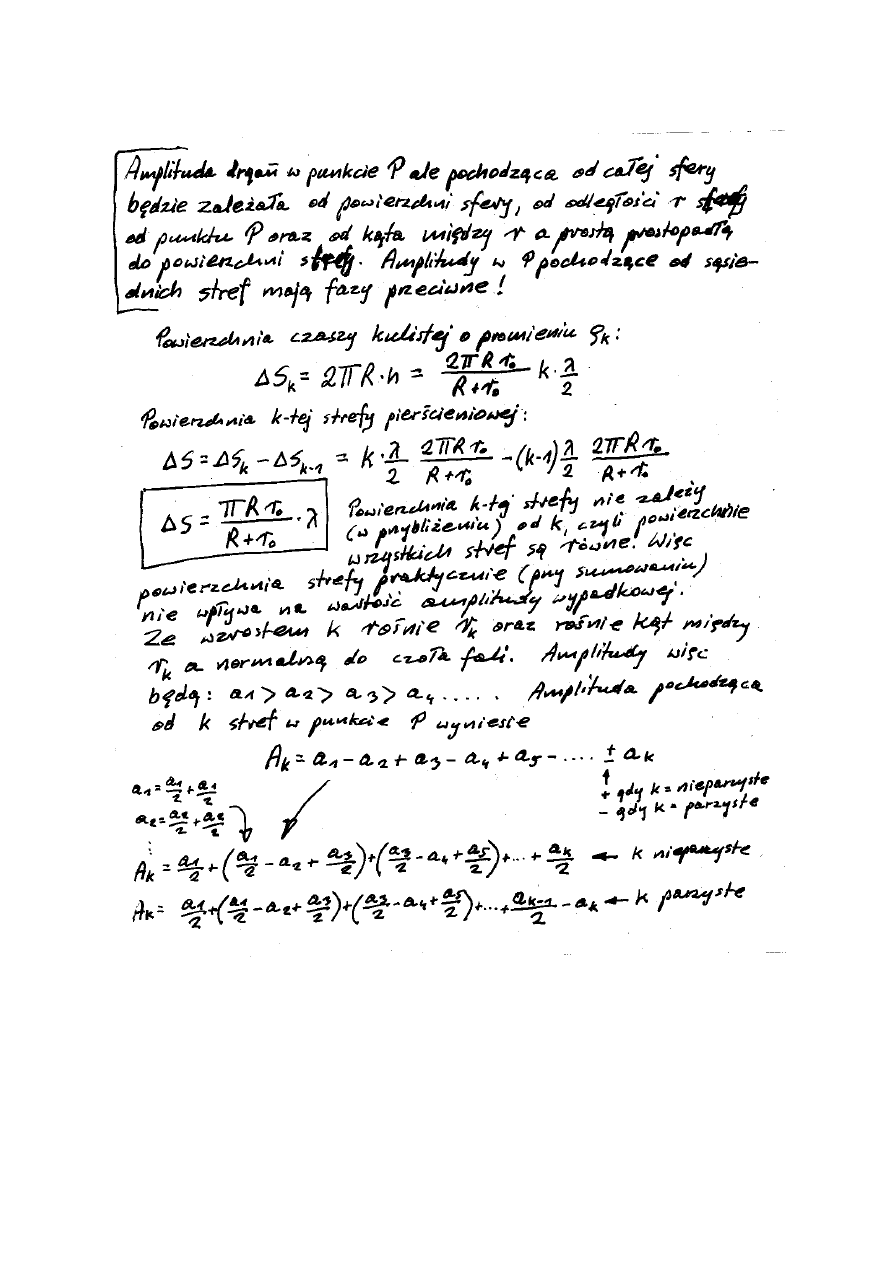 Amplituda drgań w punkcie P ale pochodząca od całej sfery
będzie zależała od powierzchni sfery, od odległości r strefy
od punktu P oraz od kąta między r a prostą prostopadłą
do powierzchni strefy. Amplitudy w P pochodzące od sąsie-
dnich stref mają fazy przeciwne!
Powierzchnia czaszy kulistej o promieniu ρk:
ΔSk = 2πR·h = 2πRr₀/(R+r₀) k·λ/2
Powierzchnia k-tej strefy pierścieniowej:
ΔS = ΔSk − ΔSk-1 = k·λ/2 2πRr₀/(R+r₀) − (k-1) λ/2 2πRr₀/(R+r₀)
ΔS = πRr₀/(R+r₀) · λ
Powierzchnia k-tej strefy nie zależy
(w przybliżeniu) od k, czyli powierzchnie
wszystkich stref są równe. Więc
powierzchnia strefy praktycznie (przy sumowaniu)
nie wpływa na wartość amplitudy wypadkowej.
Ze wzrostem k rośnie rk oraz rośnie kąt między
rk a normalną do czoła fali. Amplitudy więc
będą: a1 > a2 > a3 > a4 ..... Amplituda pochodząca
od k stref w punkcie P wyniesie
Ak = a1 − a2 + a3 − a4 + a5 − .... ± ak
+ gdy k = nieparzyste
− gdy k = parzyste
a1 = a1/2 + a1/2
a2 = a2/2 + a2/2
⋮
Ak = a1/2 + (a1/2 − a2 + a3/2) + (a3/2 − a4 + a5/2) + ... + ak/2 ← k nieparzyste
Ak = a1/2 + (a1/2 − a2 + a3/2) + (a3/2 − a4 + a5/2) + ... + ak-1/2 − ak ← k parzyste